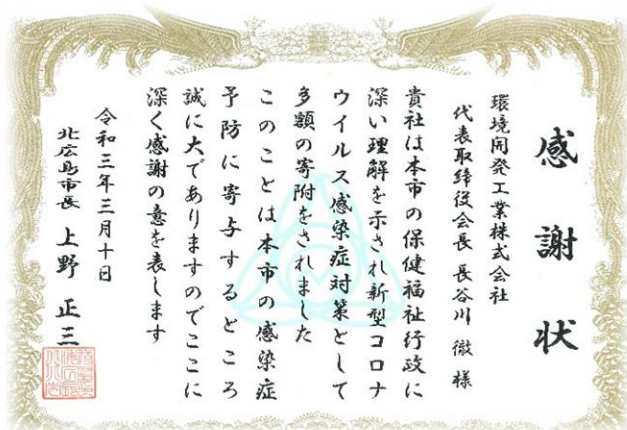 感謝状
環境開発工業株式会社
代表取締役会長 長谷川 徹 様
貴社は本市の保健福祉行政に
深い理解を示され新型コロナ
ウイルス感染症対策として
多額の寄附をされました
このことは本市の感染症
予防に寄与するところ
誠に大でありますのでここに
深く感謝の意を表します
令和三年三月十日
北広島市長 上野 正三